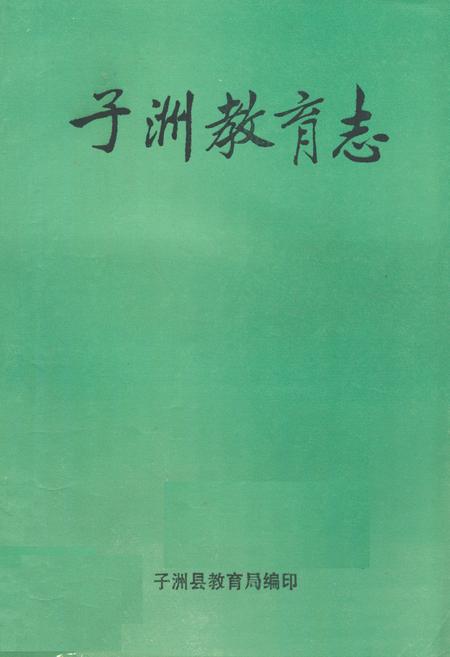 子洲教育志
子洲县教育局编印